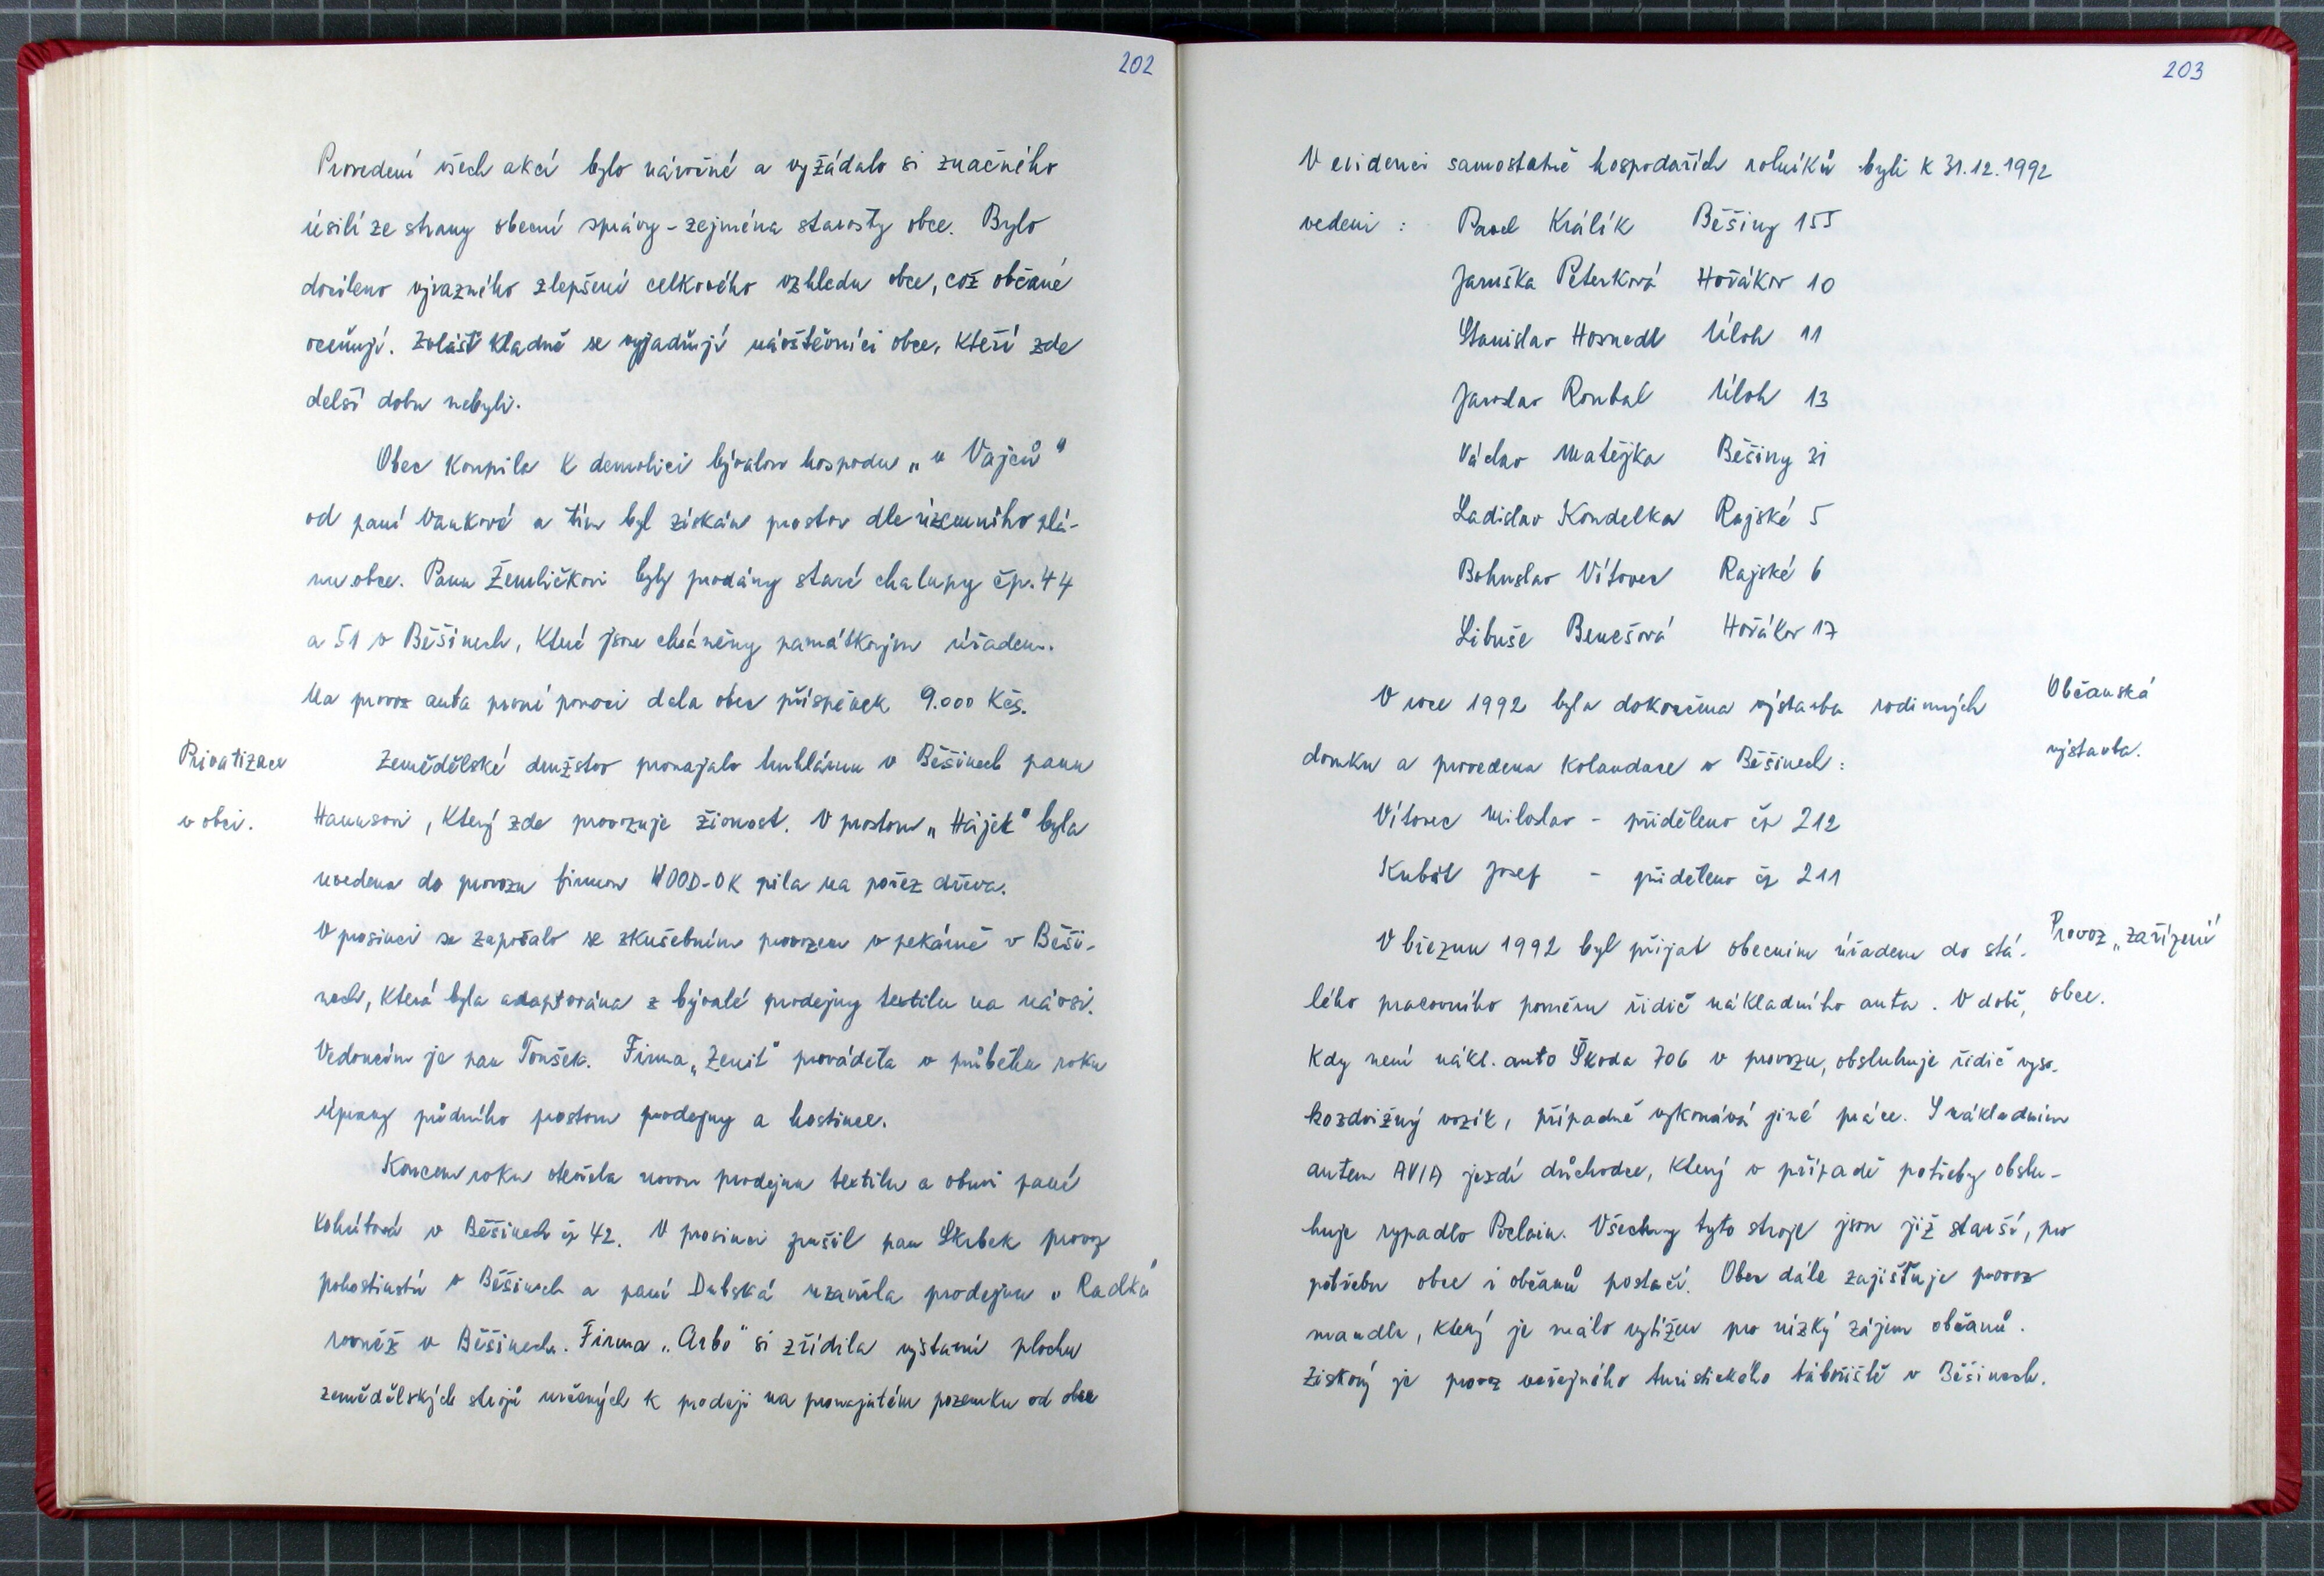 202
Provedení všech akcí bylo náročné a vyžádalo si značného
úsilí ze strany obecní správy - zejména starosty obce. Bylo
docíleno výrazného zlepšení celkového vzhledu obce, což občané
oceňují. Zvlášť kladně se vyjadřují návštěvníci obce, kteří zde
delší dobu nebyli.
Obec koupila k demolici bývalou hospodu „u Vajců"
od paní Vaňkové a tím byl získán prostor dle územního plá-
nu obce. Panu Žemličkovi byly prodány staré chalupy čp. 44
a 51 v Běšinech, které jsou chráněny památkovým úřadem.
Na provoz auta první pomoci dala obec příspěvek 9.000 Kčs.
Privatizace
v obci.
Zemědělské družstvo pronajalo truhlárnu v Běšinech panu
Hamusovi, který zde provozuje živnost. V prostoru „Hájek" byla
uvedena do provozu firmou WOOD-OK pila na pořez dřeva.
V prosinci se započalo se zkušebním provozem v pekárně v Běši-
nech, která byla adaptována z bývalé prodejny textilu na návsi.
Vedoucím je pan Toušek. Firma „Zenit" prováděla v průběhu roku
úpravy půdního prostoru prodejny a hostince.
Koncem roku otevřela novou prodejnu textilu a obuvi paní
Kohútová v Běšinech čp 42. V prosinci zrušil pan Škrbek provoz
pohostinství v Běšinech a paní Dubská uzavřela prodejnu „Radka"
rovněž v Běšinech. Firma „Arbo" si zřídila výstavní plochu
zemědělských strojů určených k prodeji na pronajatém pozemku od obce
203
V evidenci samostatně hospodařích rolníků byli k 31.12.1992
vedeni : Pavel Králík Běšiny 155
Jaruška Peterková Hořákov 10
Stanislav Hosnedl Úloh 11
Jaroslav Roubal Úloh 13
Václav Matějka Běšiny 21
Ladislav Koudelka Rajské 5
Bohuslav Vítovec Rajské 6
Libuše Benešová Hořákov 17
Občanská
výstavba.
V roce 1992 byla dokončena výstavba rodinných
domků a provedena kolaudace v Běšinech :
Vítovec Miloslav - přiděleno čp 212
Kubát Josef - přiděleno čp 211
Provoz „zařízení
obce.
V březnu 1992 byl přijat obecním úřadem do stá-
lého pracovního poměru řidič nákladního auta. V době,
kdy není nákl. auto Škoda 706 v provozu, obsluhuje řidič vyso-
kozdvižný vozík, případně vykonává jiné práce. S nákladním
autem AVIA jezdí důchodce, který v případě potřeby obslu-
huje rypadlo Poclain. Všechny tyto stroje jsou již starší, pro
potřebu obce i občanů postačí. Obec dále zajišťuje provoz
mandlu, který je málo vytížen pro nízký zájem občanů.
Ziskový je provoz veřejného turistického tábořiště v Běšinech.